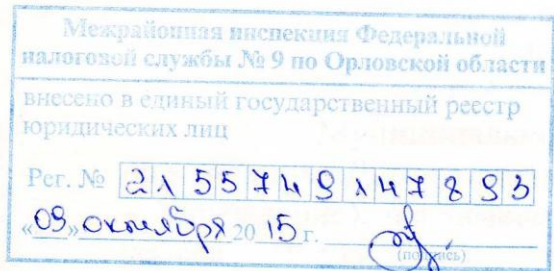 Межрайонная инспекция Федеральной
налоговой службы № 9 по Орловской области
внесено в единый государственный реестр
юридических лиц
Рег. № 2155749147893
«09» октября 2015 г.
(подпись)